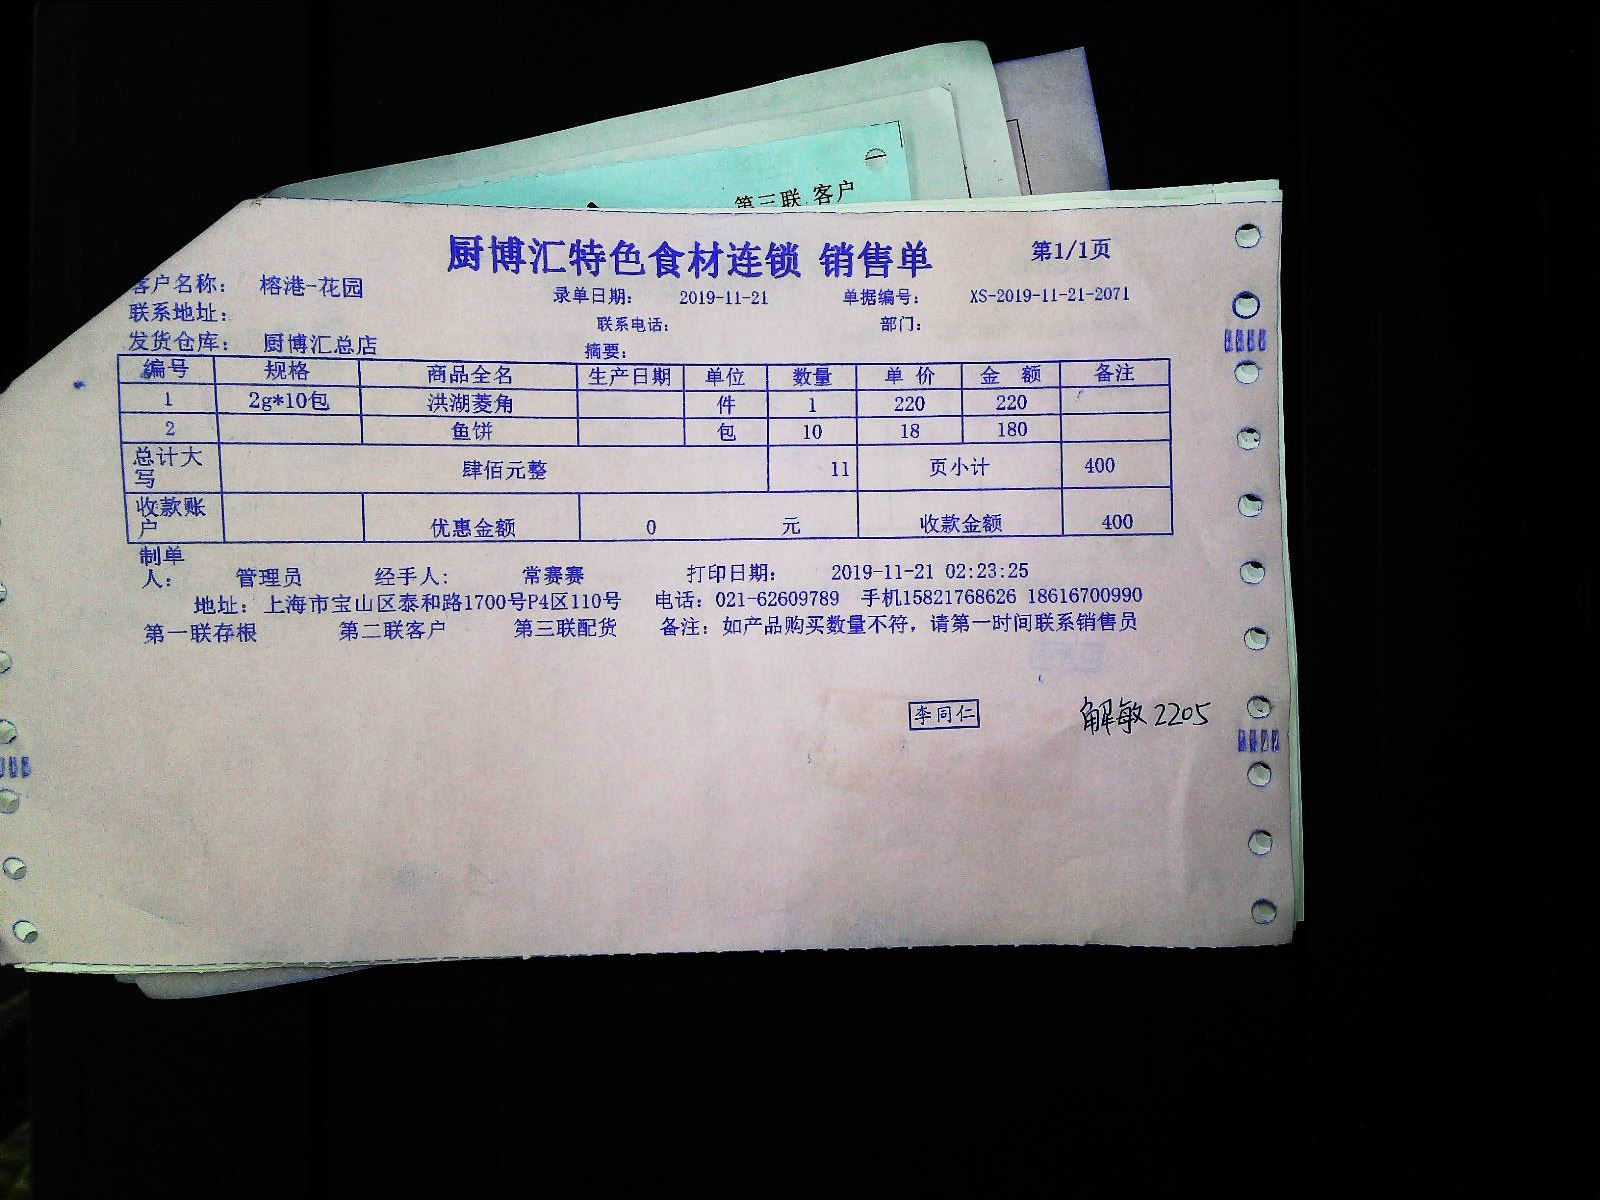 第三联 客户
厨博汇特色食材连锁 销售单 第1/1页
客户名称： 榕港-花园 录单日期： 2019-11-21 单据编号： XS-2019-11-21-2071
联系地址： 联系电话： 部门：
发货仓库： 厨博汇总店 摘要：
编号 规格 商品全名 生产日期 单位 数量 单 价 金 额 备注
1 2g*10包 洪湖菱角 件 1 220 220
2 鱼饼 包 10 18 180
总计大写 肆佰元整 11 页小计 400
收款账户 优惠金额 0 元 收款金额 400
制单人： 管理员 经手人： 常赛赛 打印日期： 2019-11-21 02:23:25
地址：上海市宝山区泰和路1700号P4区110号 电话：021-62609789 手机15821768626 18616700990
第一联存根 第二联客户 第三联配货 备注：如产品购买数量不符，请第一时间联系销售员
李同仁 解敏 2205